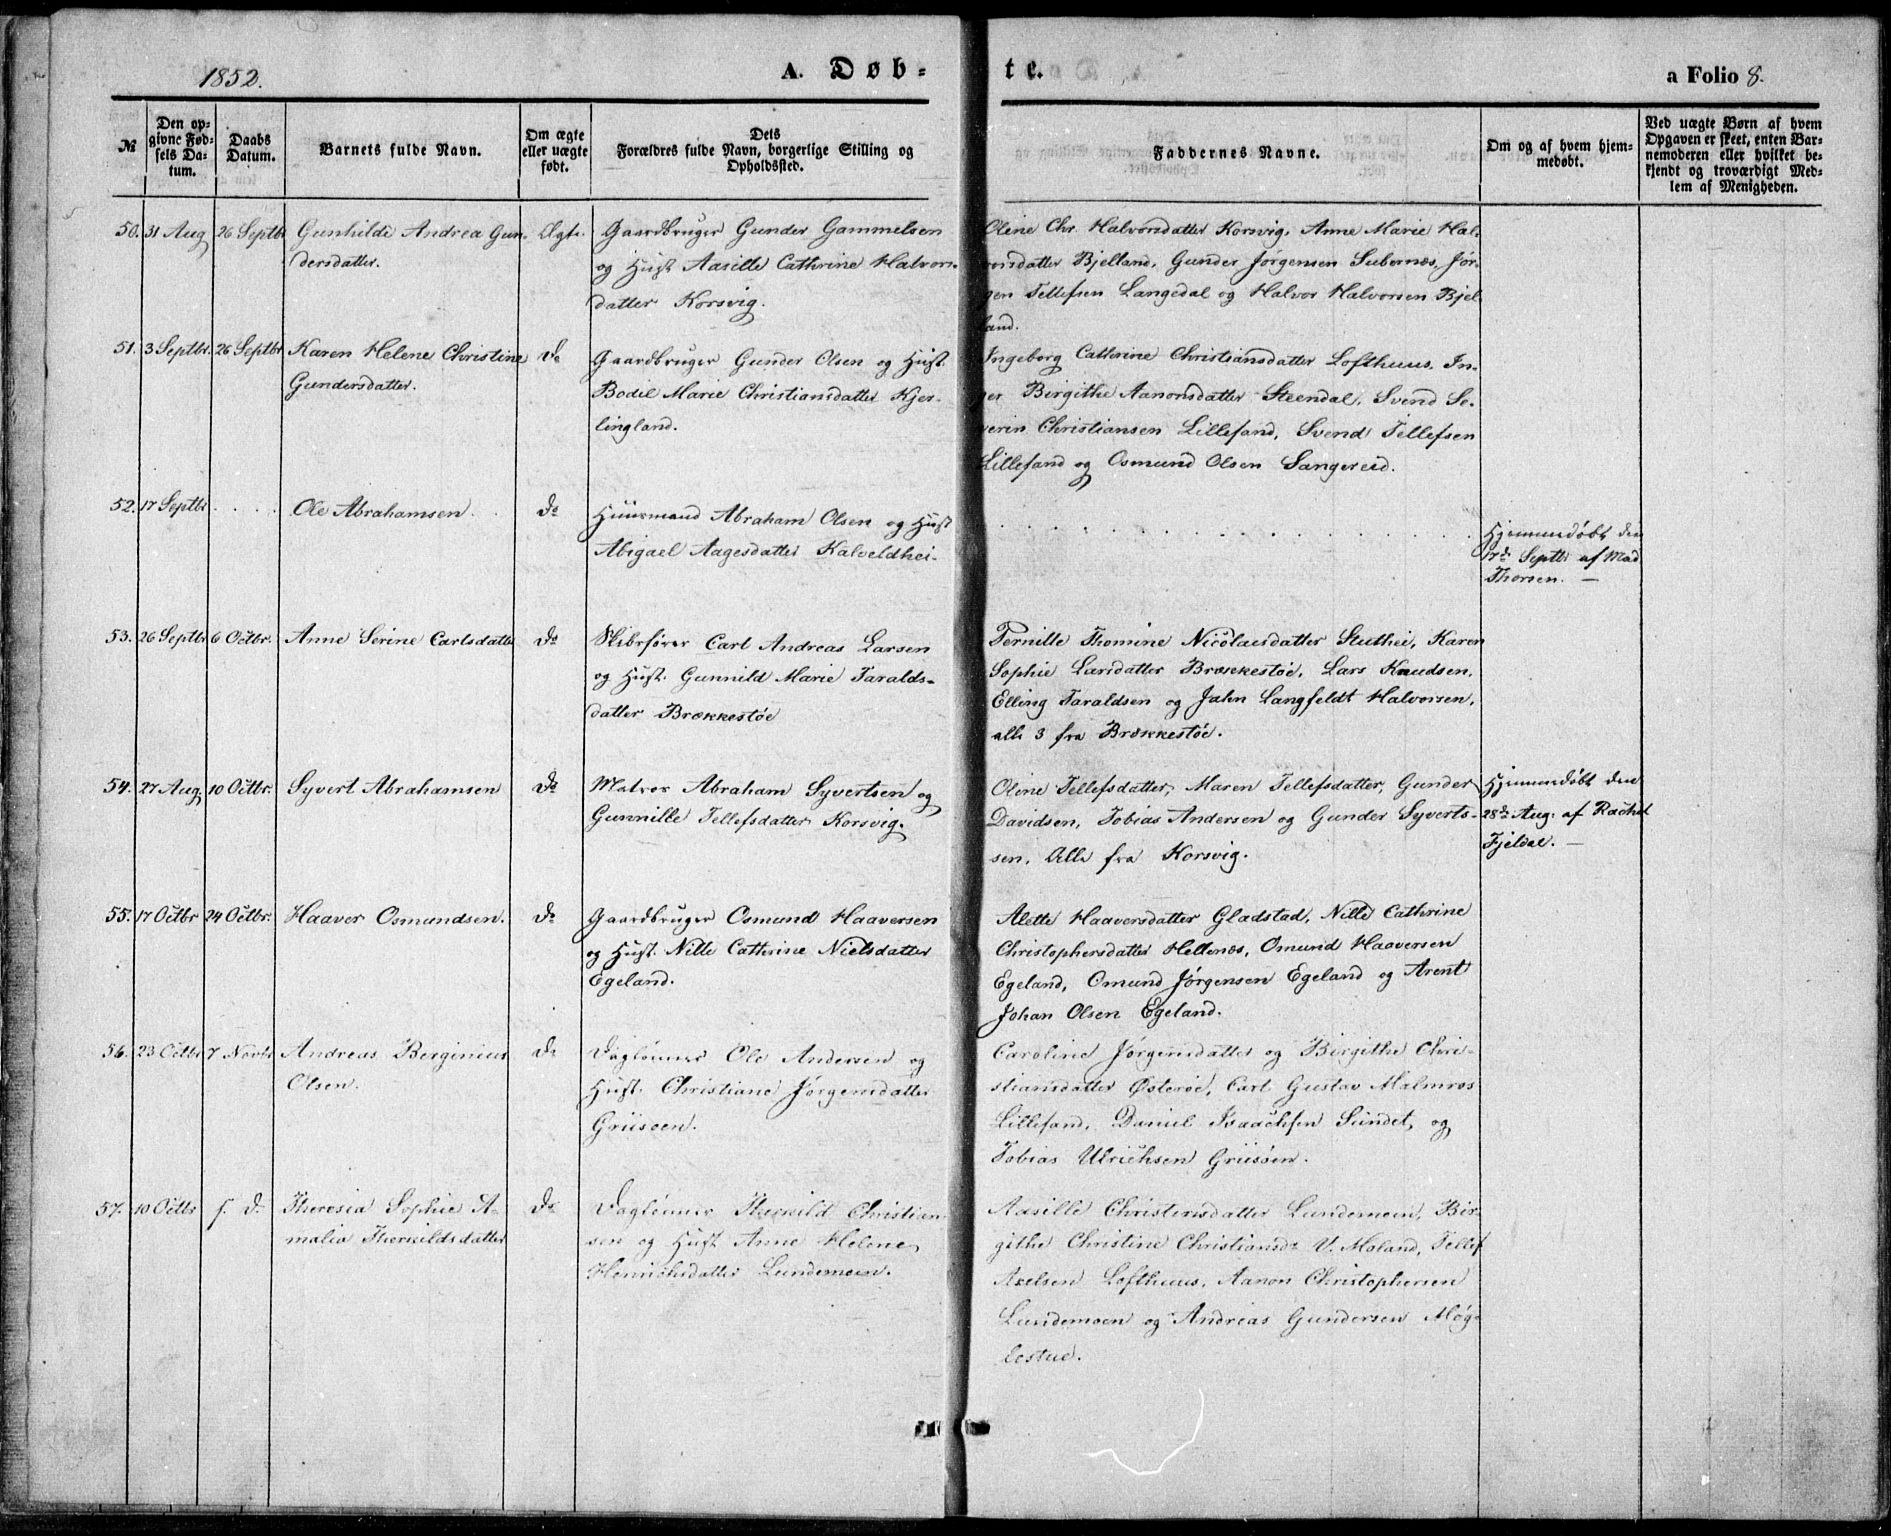 1852.
A. Døb-
te.
a Folio 8.
№
Den op-
givne Fød-
sels Da-
tum.
Daabs
Datum.
Barnets fulde Navn.
Om ægte
eller uægte
født.
Dets
Forældres fulde Navn, borgerlige Stilling og
Opholdssted.
Faddernes Navne.
Om og af hvem hjem-
medøbt.
Ved uægte Børn af hvem
Opgaven er skeet, enten Bar-
nemoderen eller hvilket be-
kjendt og troværdigt Med-
lem af Menigheden.
50. 31 Aug 26 Septbr Gunhilde Andrea Gun- Ægte. Gaardbruger Gunder Gammelsen
dersdatter. og Hust Aasille Cathrine Halvors-
datter Korsvig.
Oline Chr. Halvorsdatter Korsvig, Anne Marie Hal-
vorsdatter Bjelland, Gunder Jørgensen Subernæs, Jør-
gen Tellefsen Langedal og Halvor Halvorsen Bjel-
land.
51. 3 Septbr. 26 Septbr Karen Helene Christine Do Gaardbruger Gunder Olsen og Hust.
Gundersdatter. Bodil Marie Christiansdatter Kjer-
lingland.
Ingeborg Cathrine Christiansdatter Lofthuus, In-
ger Birgithe Aanonsdatter Steendal, Svend Se-
verin Christiansen Lillesand, Svend Tellefsen
Lillesand og Osmund Olsen Sangereid.
52. 17 Septbr . . . . Ole Abrahamsen . . Do Huusmand Abraham Olsen og Hust
Abigael Aagesdatter Kalveldhei-
Hjemmedøbt den
17de Septbr af Mad
Thorsen. —
53. 26 Septbr 6 Octbr. Anne Serine Carlsdatter Do Skibsfører Carl Andreas Larsen
og Hust. Gunnild Marie Taralds-
datter Brækkestøe
Pernille Thomine Nicolaisdatter Stuthei, Karen
Sophie Larsdatter Brækkestøe, Lars Knudsen,
Elling Taraldsen og Jahn Langfeldt Halvorsen,
alle 3 fra Brækkestøe.
54. 27 Aug 10 Octbr. Syvert Abrahamsen Do Matros Abraham Syvertsen og
Gunnille Tellefsdatter Korsvig.
Oline Tellefsdatter, Maren Tellefsdatter, Gunder
Davidsen, Tobias Andersen og Gunder Syverts-
sen, Alle fra Korsvig.
Hjemmedøbt den
28de Aug. af Rachel
Fjeldal. —
55. 17 Octbr 24 Octbr. Haaver Osmundsen. Do Gaardbruger Osmund Haaversen
og Hust. Nille Cathrine Nielsdatter
Egeland.
Alette Haaversdatter Gladstad, Nille Cathrine
Christophersdatter Hellenæs, Omund Haaversen
Egeland, Omund Jørgensen Egeland og Arent
Johan Olsen Egeland.
56. 23 Octbr 7 Novbr Andreas Berginius Do Dagleinner Ole Andersen og
Olsen. Hust. Christiane Jørgensdatter
Griisøen.
Caroline Jørgensdatter og Birgithe Chri-
stiansdatter Østerøe, Carl Gustav Malmros
Lillesand, Daniel Isaachsen Sundet, og
Tobias Ulrichsen Griisøen.
57. 10 Octbr s. D. Theresia Sophie A- Do Dagleinner Therkild Christian-
malia Therkildsdatter sen og Hust Anne Helene
Henrichsdatter Lundemoen.
Aasille Christensdatter Lundemoen, Bir-
githe Christine Christiansdr V. Moland, Tellef
Axelsen Lofthuus, Aanon Christophersen
Lundemoen og Andreas Gundersen Møg-
lestue.